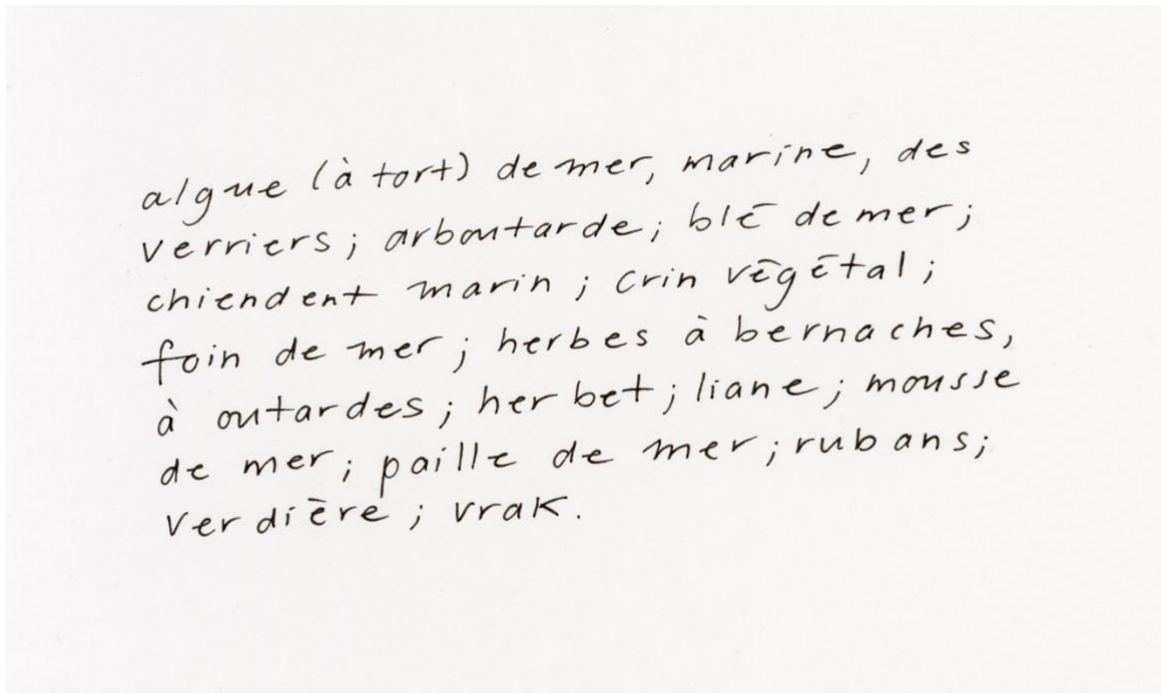 algue (à tort) de mer, marine, des
verriers; arboutarde; blé de mer;
chiendent marin; crin végétal;
foin de mer; herbes à bernaches,
à outardes; herbet; liane; mousse
de mer; paille de mer; rubans;
verdière; vrak.